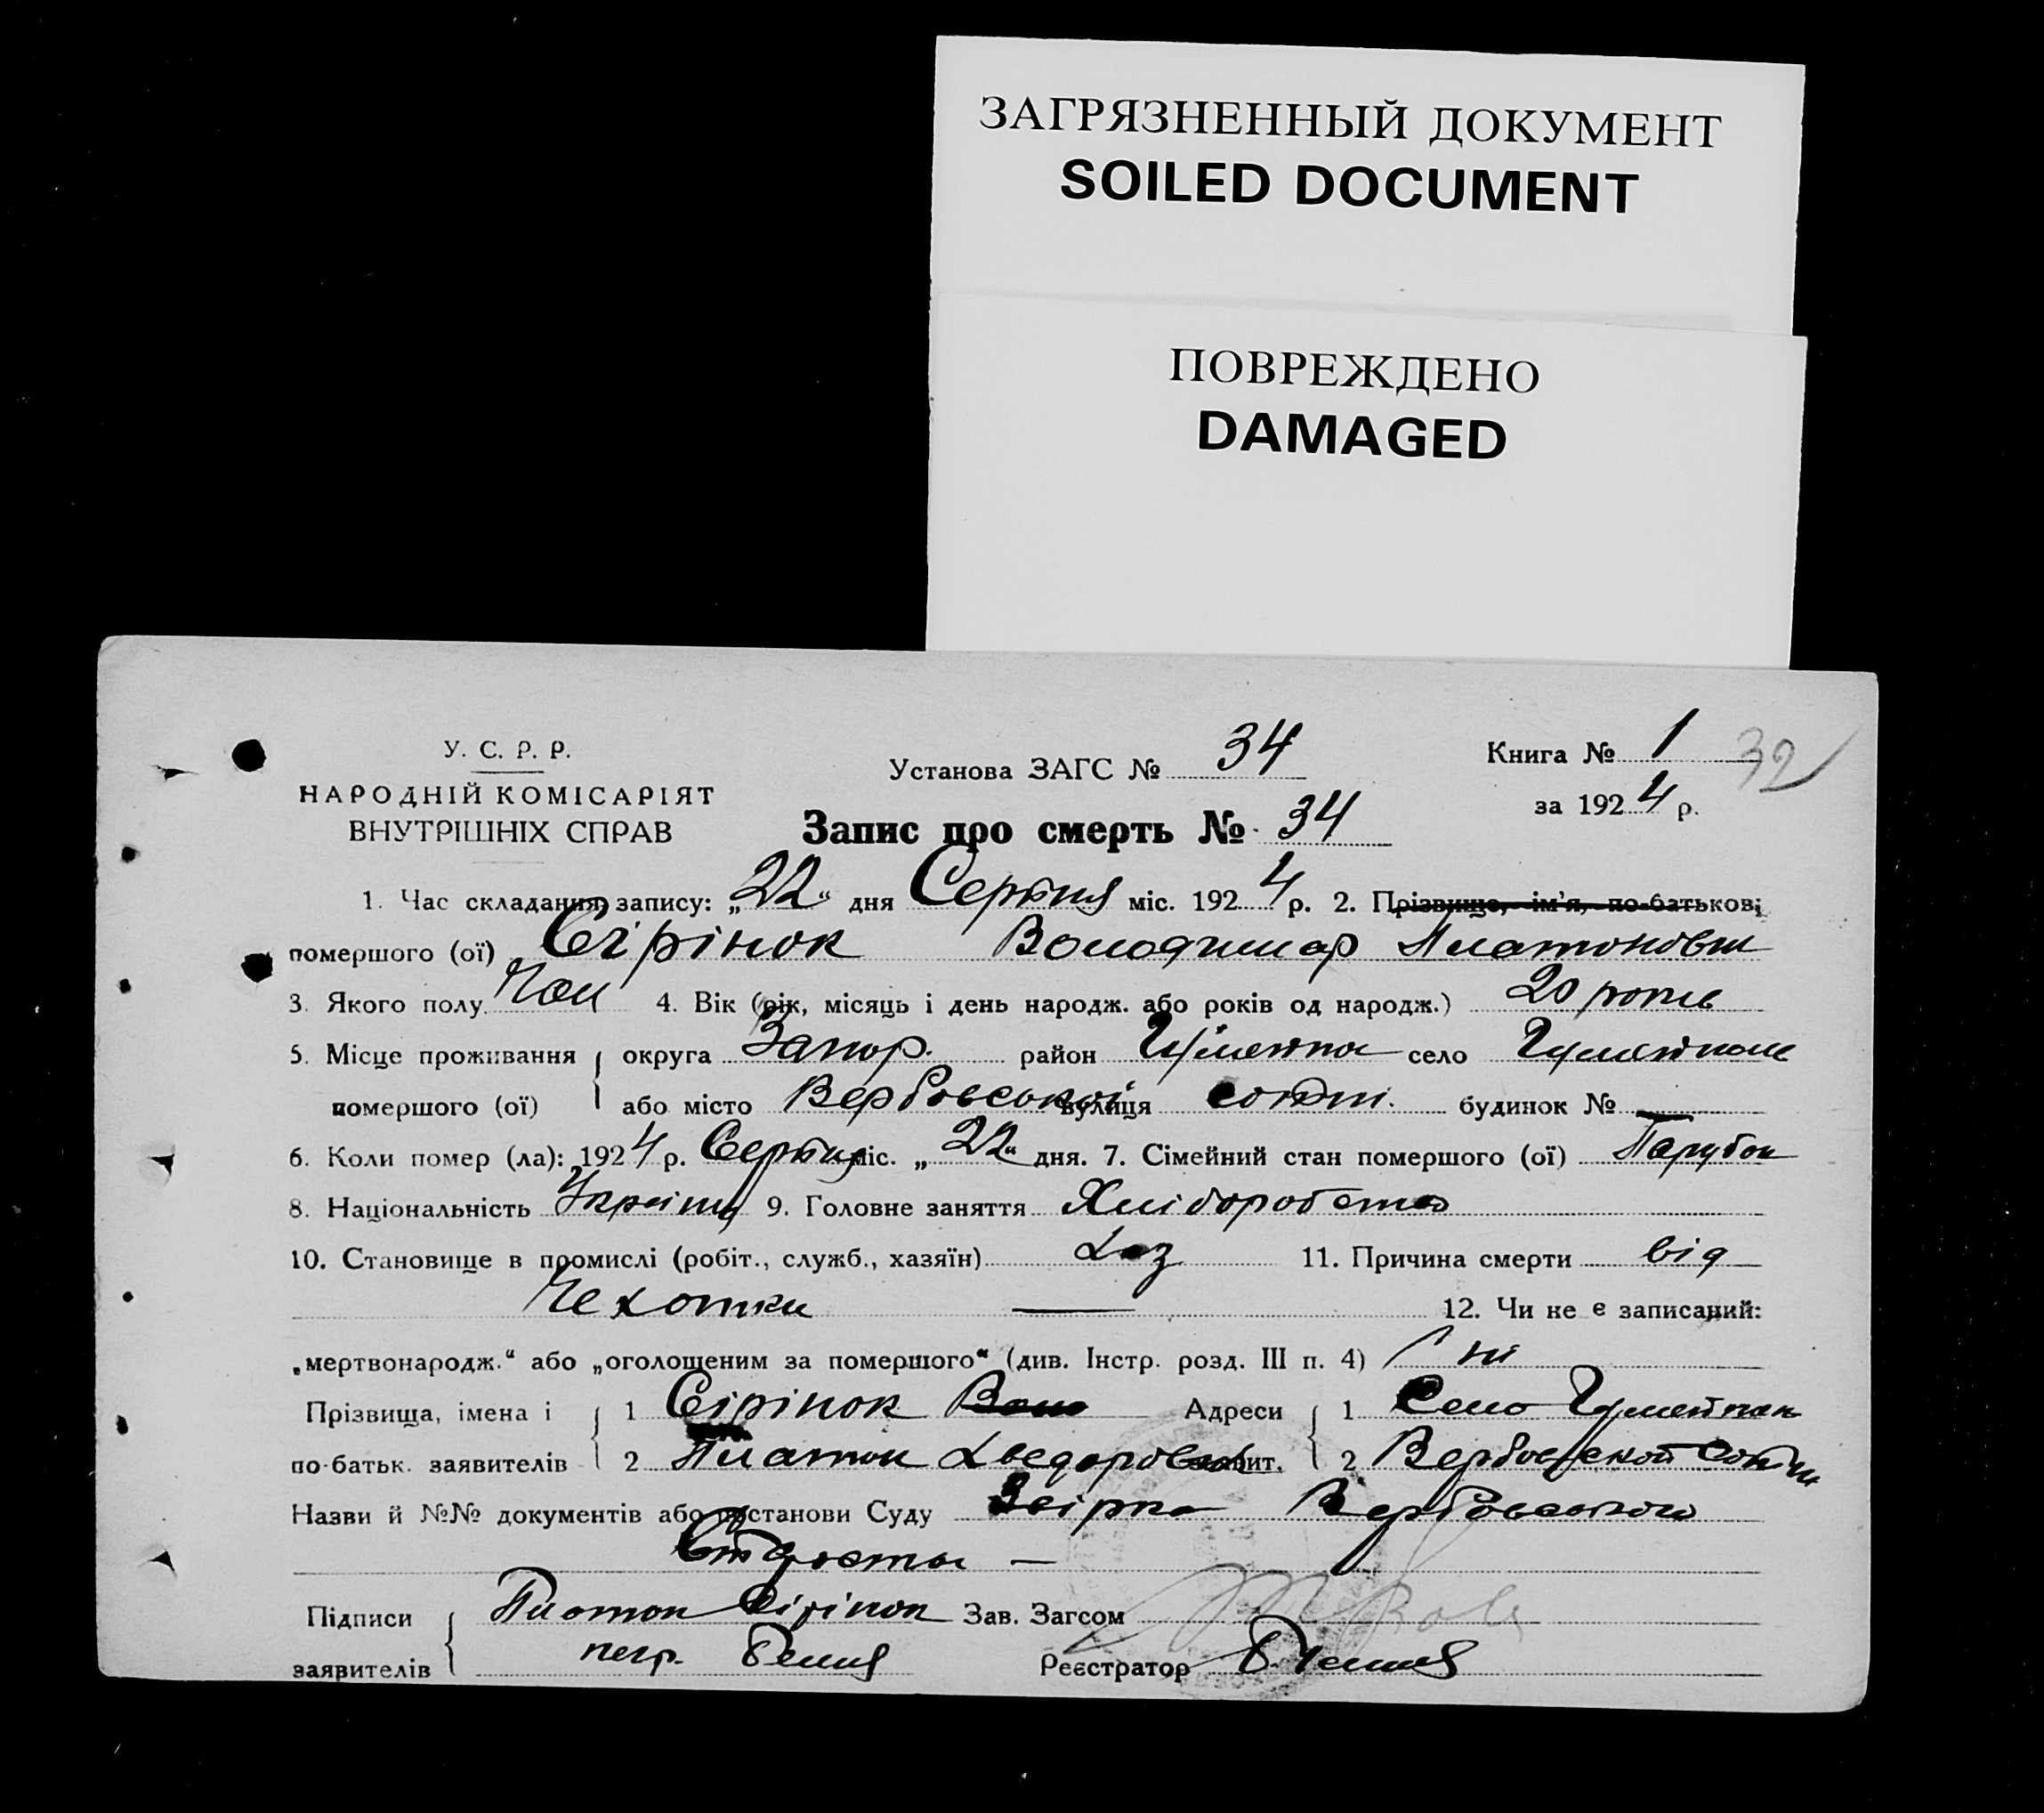 ЗАГРЯЗНЕННЫЙ ДОКУМЕНТ
SOILED DOCUMENT
ПОВРЕЖДЕНО
DAMAGED
У. С. Р. Р.
НАРОДНІЙ КОМІСАРІЯТ
ВНУТРІШНІХ СПРАВ
Установа ЗАГС № 34
Книга № 1 32
за 1924 р.
Запис про смерть № 34
1. Час складання запису: „22“ дня Серпня міс. 1924 р. 2. Прізвище, ім’я, по-батькові
помершого (ої) Сірінок Володимир Платонович
3. Якого полу Чол 4. Вік (рік, місяць і день народж. або років од народж.) 20 років
5. Місце проживання округа Запор. район село
помершого (ої) або місто Вербовської вулиця сотні. будинок № —
6. Коли помер (ла): 1924 р. Серпня міс. „22“ дня. 7. Сімейний стан помершого (ої) Парубок
8. Національність 9. Головне заняття Хліборобство
10. Становище в промислі (робіт., служб., хазяїн) 11. Причина смерти від
Чехотки — 12. Чи не є записаний:
„мертвонародж.“ або „оголошеним за помершого“ (див. Інстр. розд. III п. 4) ні
Прізвища, імена і 1 Сірінок Адреси 1 Село
по-батьк. заявителів 2 Платон заявит. 2 Вербовской Сотни
Назви й №№ документів або постанови Суду Вербовського
—
Підписи Платон Сірінок Зав. Загсом
заявителів Реєстратор